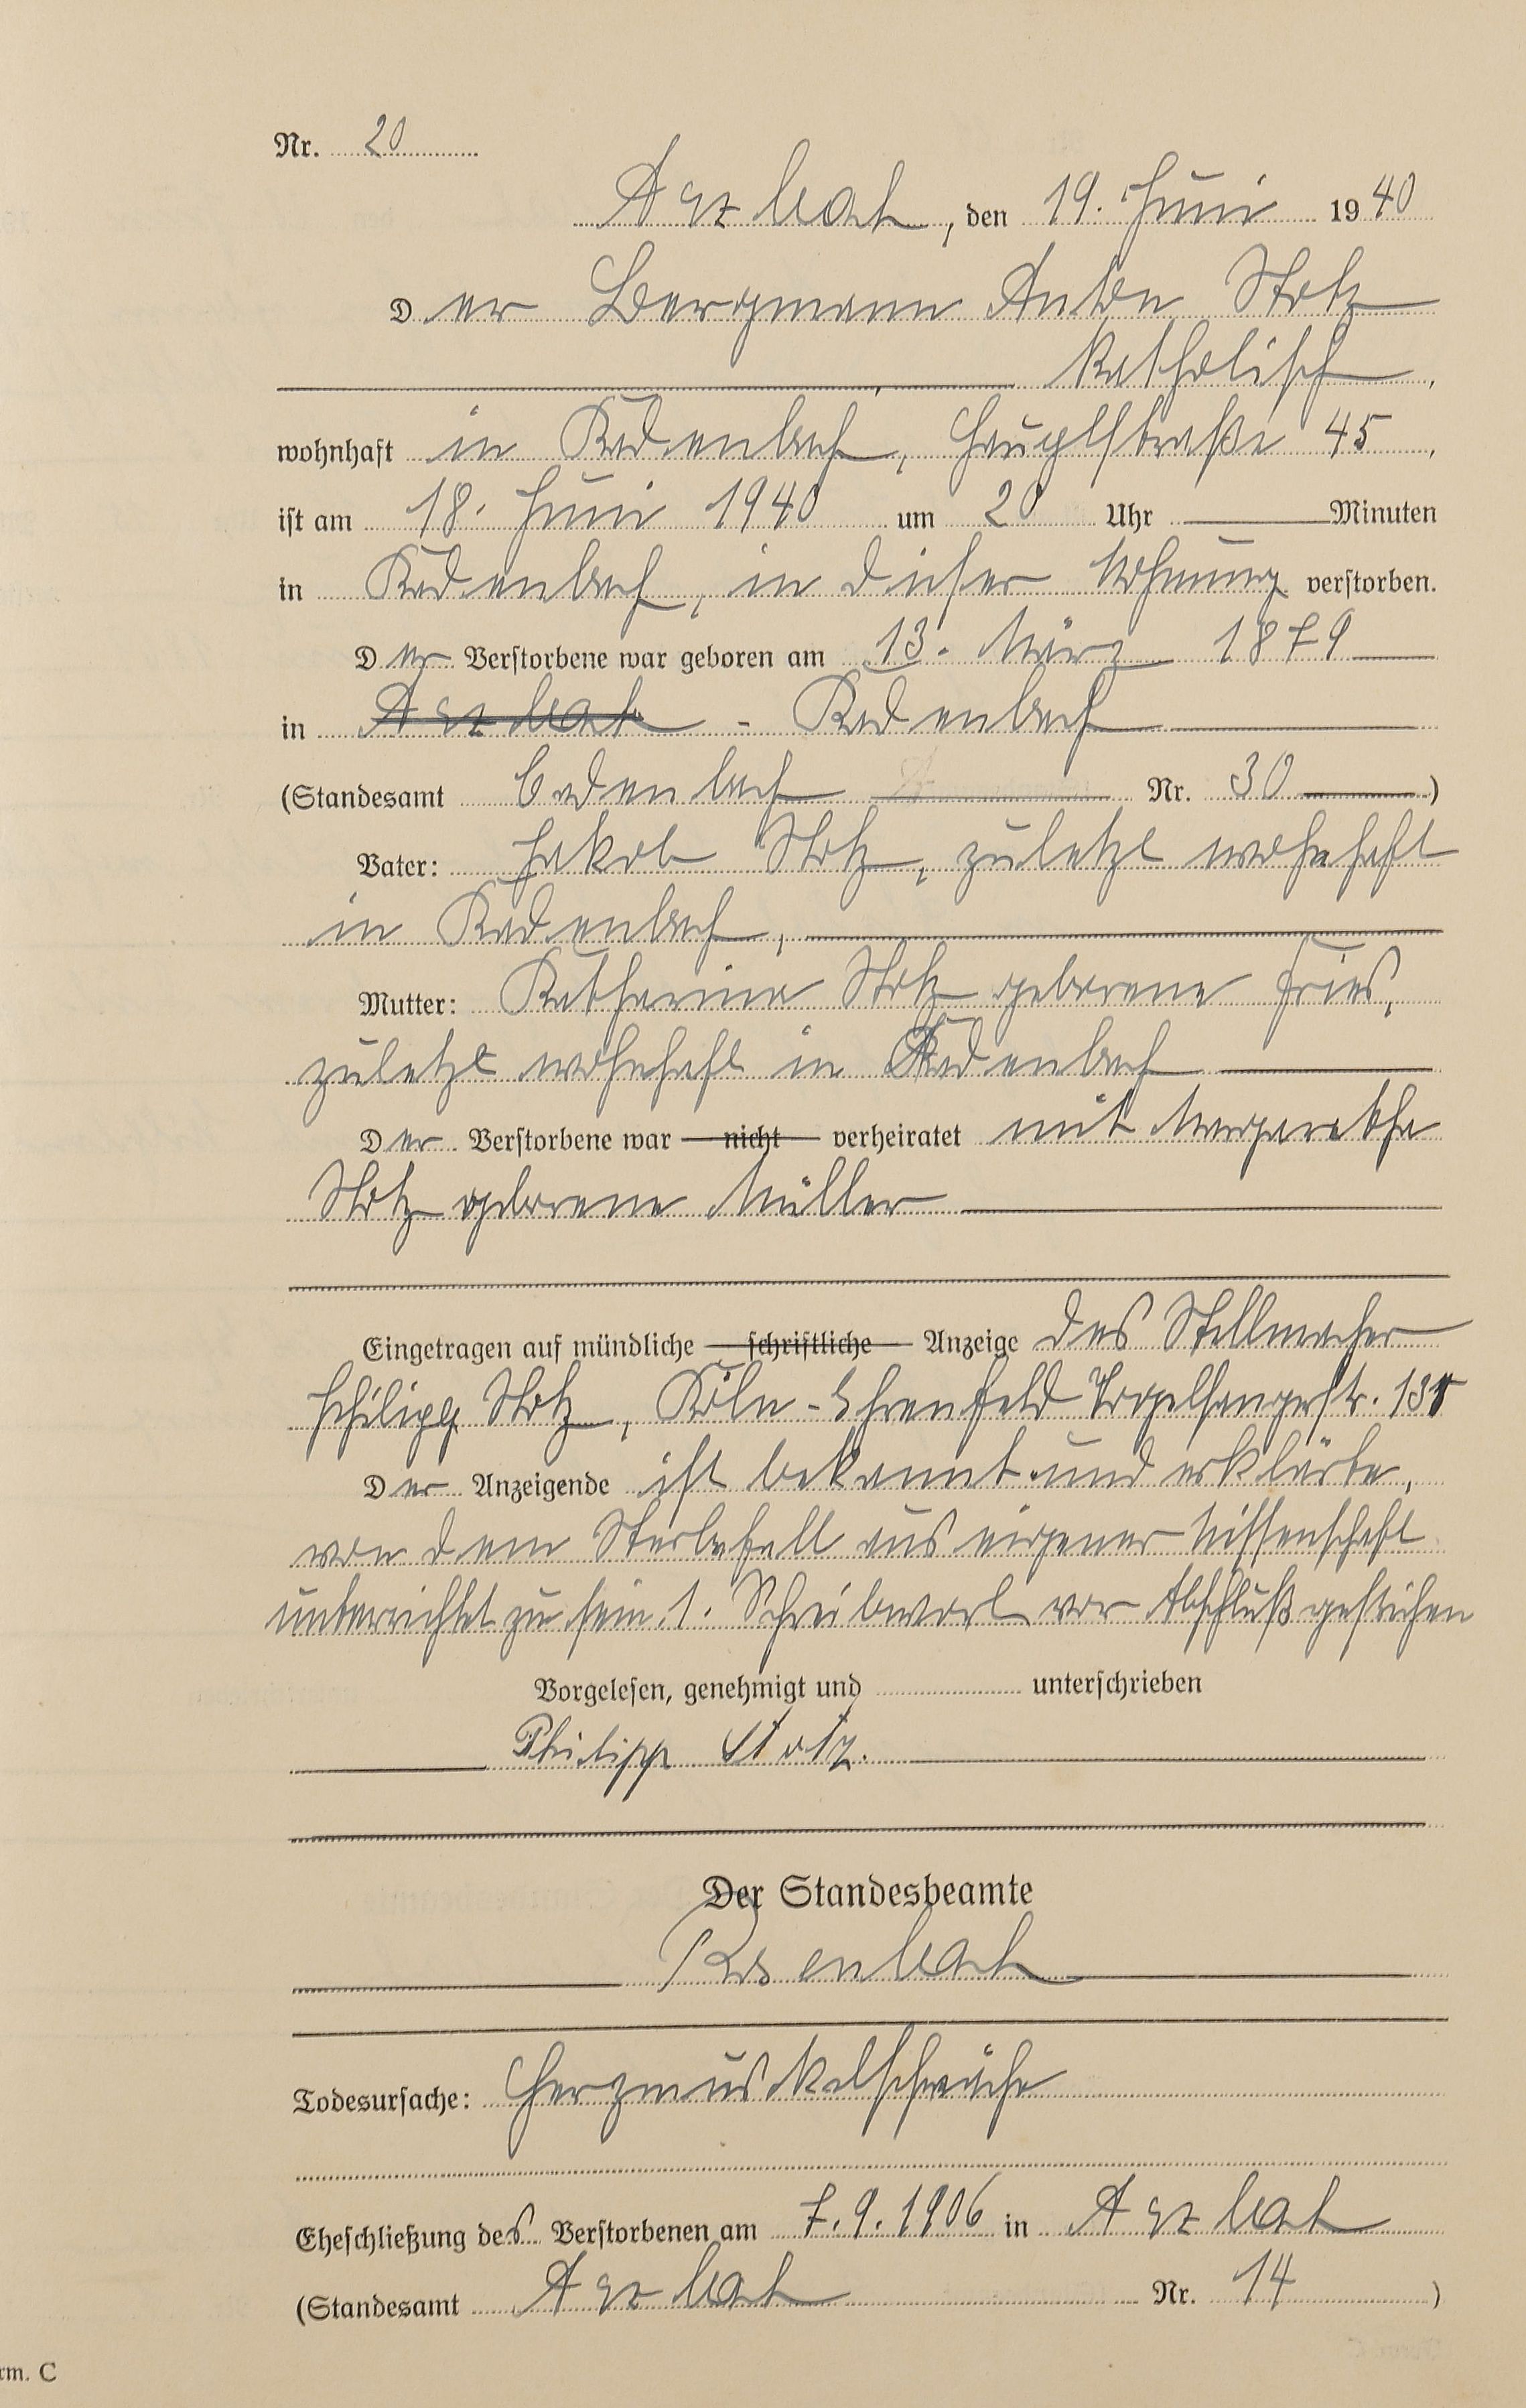 Nr. 20
Arzbach, den 19. Juni 1940
Der Bergmann Anton Stotz
katholisch,
wohnhaft in Kadenbach, Hauptstraße 45,
ist am 18. Juni 1940 um 20 Uhr Minuten
in Kadenbach, in dieser Wohnung verstorben.
Der Verstorbene war geboren am 13. März 1879
in Arzbach - Kadenbach
(Standesamt Nr. 30)
Vater: Jakob Stotz, zuletzt wohnhaft
in Kadenbach,
Mutter: Katharina Stotz geborene Fries,
zuletzt wohnhaft in Kadenbach
Der Verstorbene war nicht verheiratet mit Margaretha
Stotz geborene Müller
Eingetragen auf mündliche schriftliche Anzeige des Stellmacher
Philipp Stotz, Köln-Ehrenfeld Vogelsangerstr.
Der Anzeigende ist bekannt und erklärte,
von dem Sterbefall aus eigener Wissenschaft
unterrichtet zu sein. 1. Schreibwort vor Abschluß gestrichen
Vorgelesen, genehmigt und unterschrieben
Philipp Stotz.
Der Standesbeamte
Rosenbach
Todesursache: Herzmuskelschwäche
Eheschließung des Verstorbenen am 7.9.1906 in Arzbach
(Standesamt Arzbach Nr. 14)
rm. C